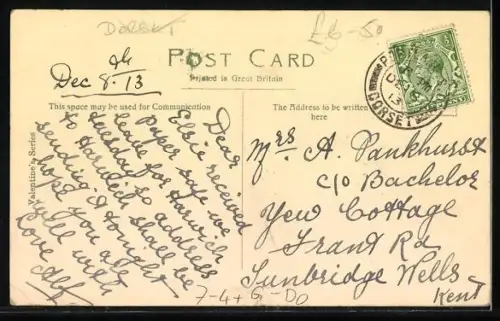 DORSET
£6-50
POST CARD
Printed in Great Britain
Dec 8th.13
This space may be used for Communication
The Address to be written
here
Valentine's Series
Dear
Elsie received
paper safe we
leave for Harwich
tuesday so address
to Harwich shall be
sending it tonight
hope you are
well with
love Alf
Mrs A. Pankhurst
c/o Bachelor
Yew Cottage
Frant Rd
Tunbridge Wells
Kent
DORSET
13